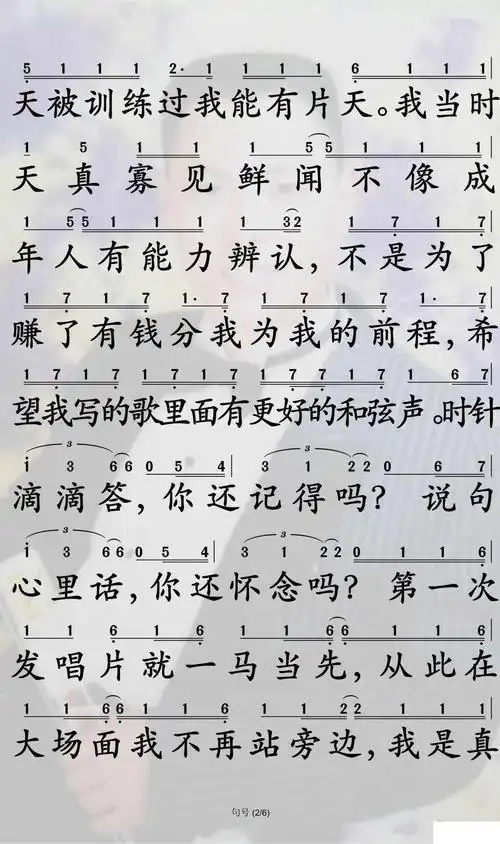 5 1 1 1 2· 1 1 1 1 6 1 1 1
天被训练过我能有片天。我当时
1 5 1 1 1 1 5 5 1 1 1
天真寡见鲜闻不像成
1 5 5 1 1 1 1 3 2 1 7 1 7
年人有能力辨认,不是为了
1 7 1 7 1· 7 1 7 1 7 1· 7
赚了有钱分我为我的前程,希
1 7 1 7 1 7 1 7 1 7 7 7 1 7 1 6 7
望我写的歌里面有更好的和弦声。时针
3 3
i 3 6 6 0 5 4 3 1 2 2 0 6 7
滴滴答,你还记得吗? 说句
3 3
i 3 6 6 0 5 4 3 1 2 2 0 1 1 6
心里话,你还怀念吗? 第一次
1 1 6 1 6 1 1 6 6 1 1 6
发唱片就一马当先,从此在
1 1 6 6 1 1 6 1 1 2 2 1 1 1
大场面我不再站旁边,我是真
句号 (2/6)